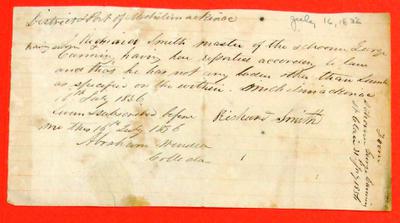 District & Port of Michilimackinac
July 16, 1836
I Richard Smith master of the schooner George
Canning having here reported according to law
and that he has not any laden other than Lumb
as specified on the within. Michilimackinac
16 July 1836
Richard Smith
Sworn & subscribed before
me this 16th July 1836
Abraham Wendell
Collector
From
Schooner George Canning
St Clair
July 1836